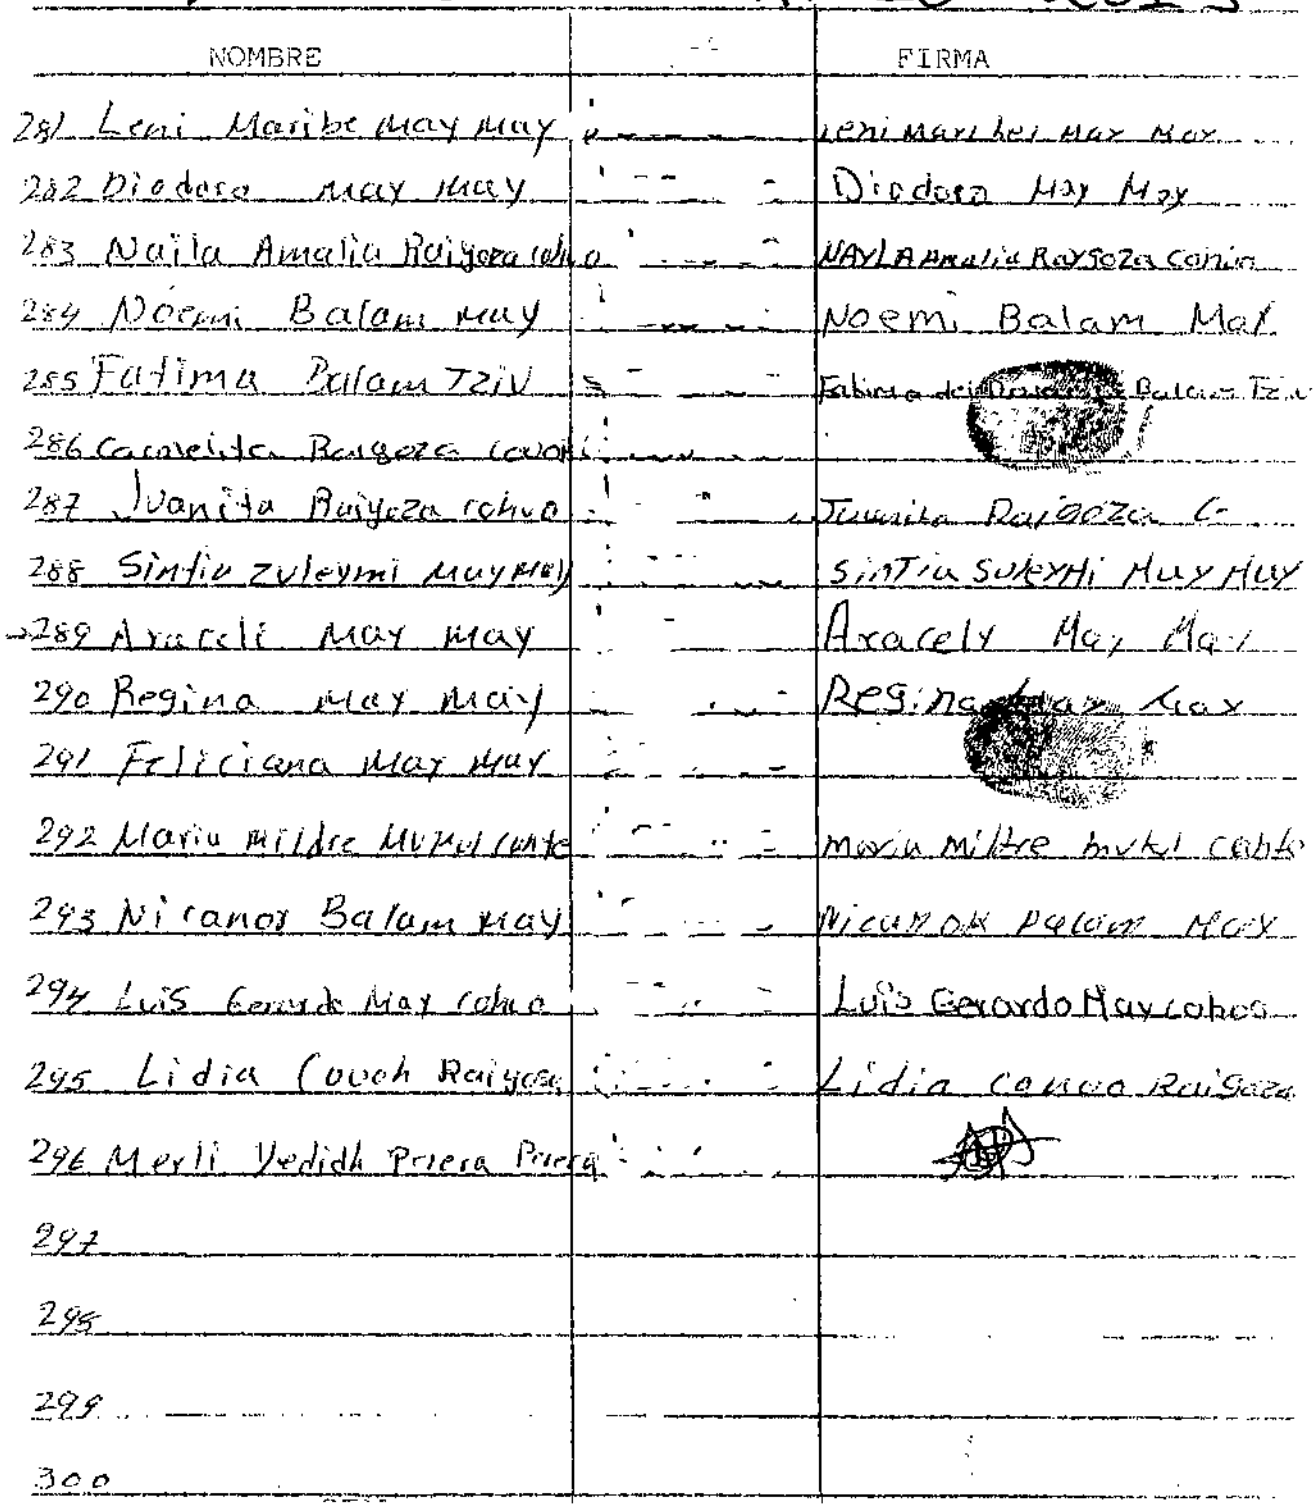 NOMBRE FIRMA
281 Leni Maribe May May Leni Maribel May May
282 Diodora May May Diodora May May
283 Naila Amalia Raigoza cohuo NAYLA Amalia Raygoza
284 Noemi Balam May Noemi Balam May
285 Fatima Balam Tziu Fatima del Balam Tziu
286 Carmelita Raigoza
287 Juanita Raigoza cohuo Juanita Raigoza C
288 Sintia Zuleymi May May Sintia Suleymi May May
289 Araceli May May Aracely May May
290 Regina May May Regina May May
291 Feliciana May May
292 Maria Mildre Mukul Cante maria mildre mukul
293 Nicanor Balam May Nicanor Balam May
294 Luis Gerardo May cohuo Luis Gerardo May cohoo
295 Lidia Couoh Raigosa Lidia Raigoza
296 Merli Yedidh
297
298
299
300